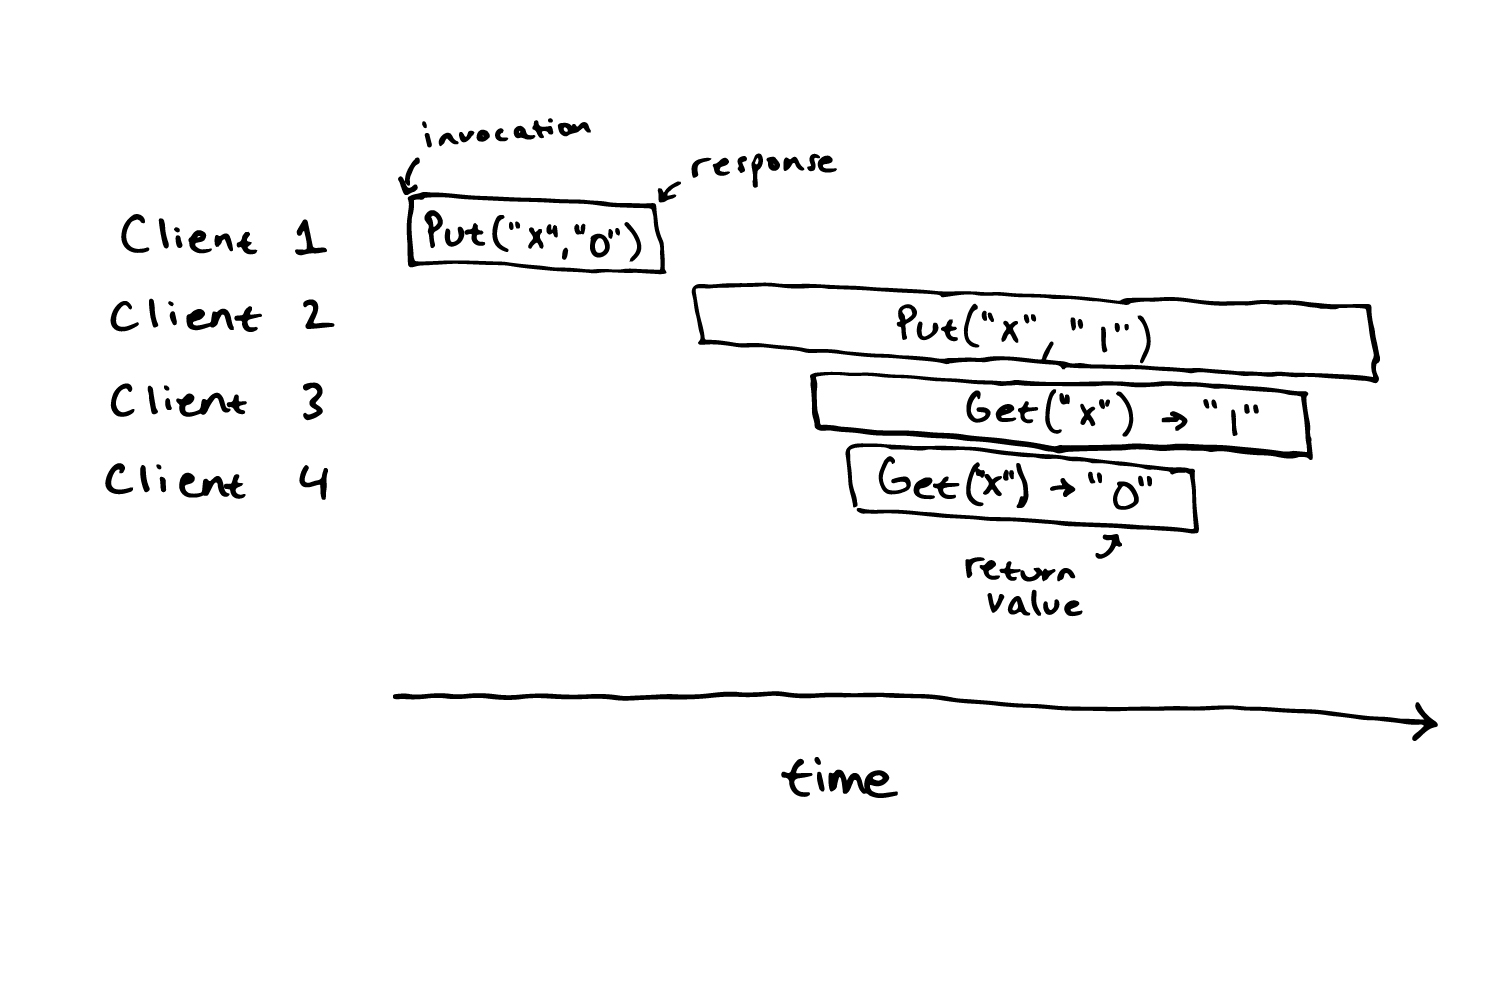 invocation
response
Client 1
Put("x","0")
Client 2
Put("x","1")
Client 3
Get("x") → "1"
Client 4
Get("x") → "0"
return
value
time